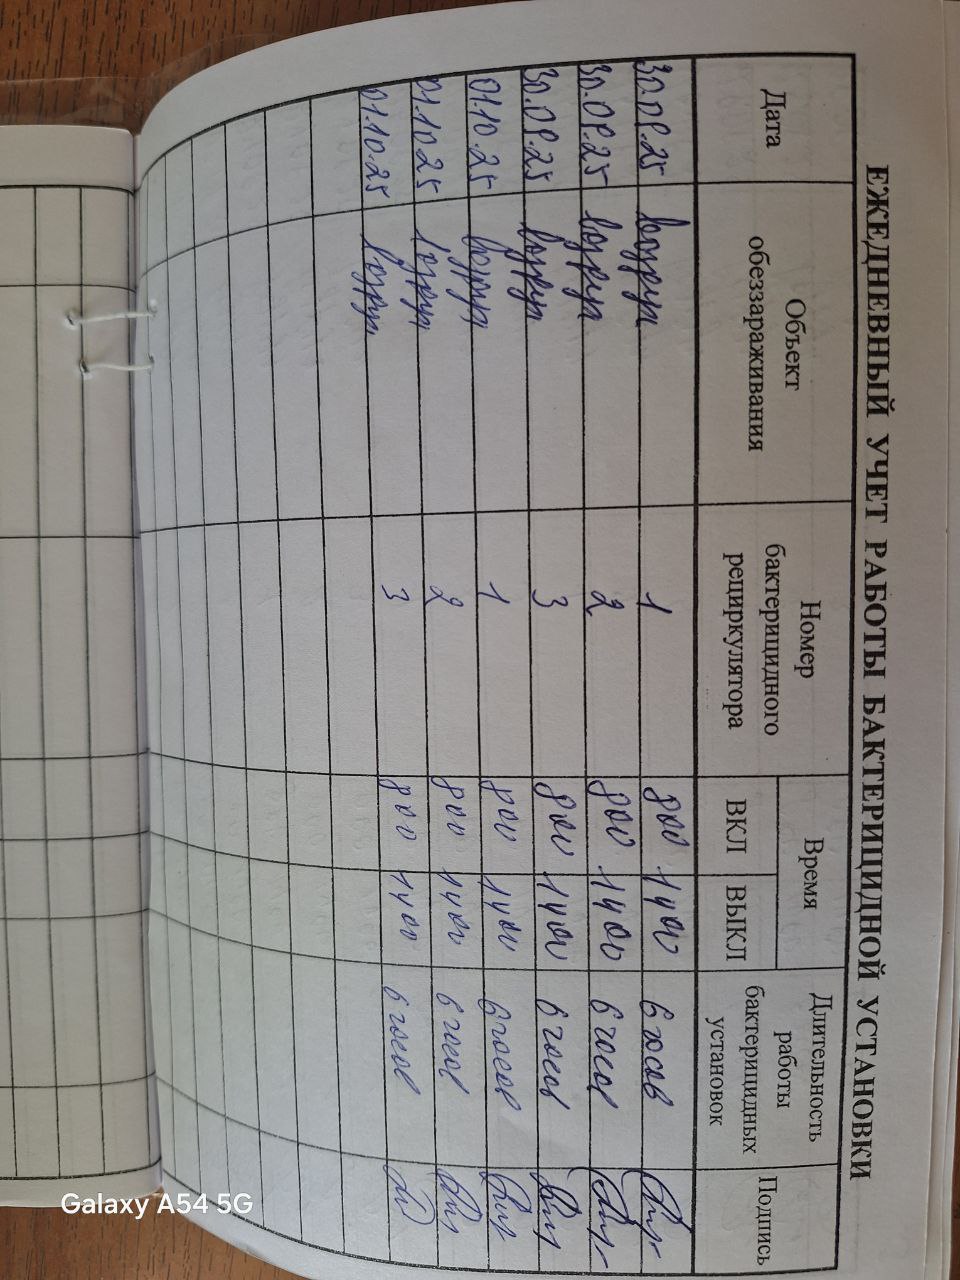 ЕЖЕДНЕВНЫЙ УЧЕТ РАБОТЫ БАКТЕРИЦИДНОЙ УСТАНОВКИ
Дата
Объект
обеззараживания
Номер
бактерицидного
рециркулятора
Время
ВКЛ
ВЫКЛ
Длительность
работы
бактерицидных
установок
Подпись
30.09.25 воздух 1 800 1400 6 часов
30.09.25 воздух 2 800 1400 6 часов
30.09.25 воздух 3 800 1400 6 часов
01.10.25 воздух 1 800 1400 6 часов
01.10.25 воздух 2 800 1400 6 часов
01.10.25 воздух 3 800 1400 6 часов
Galaxy A54 5G